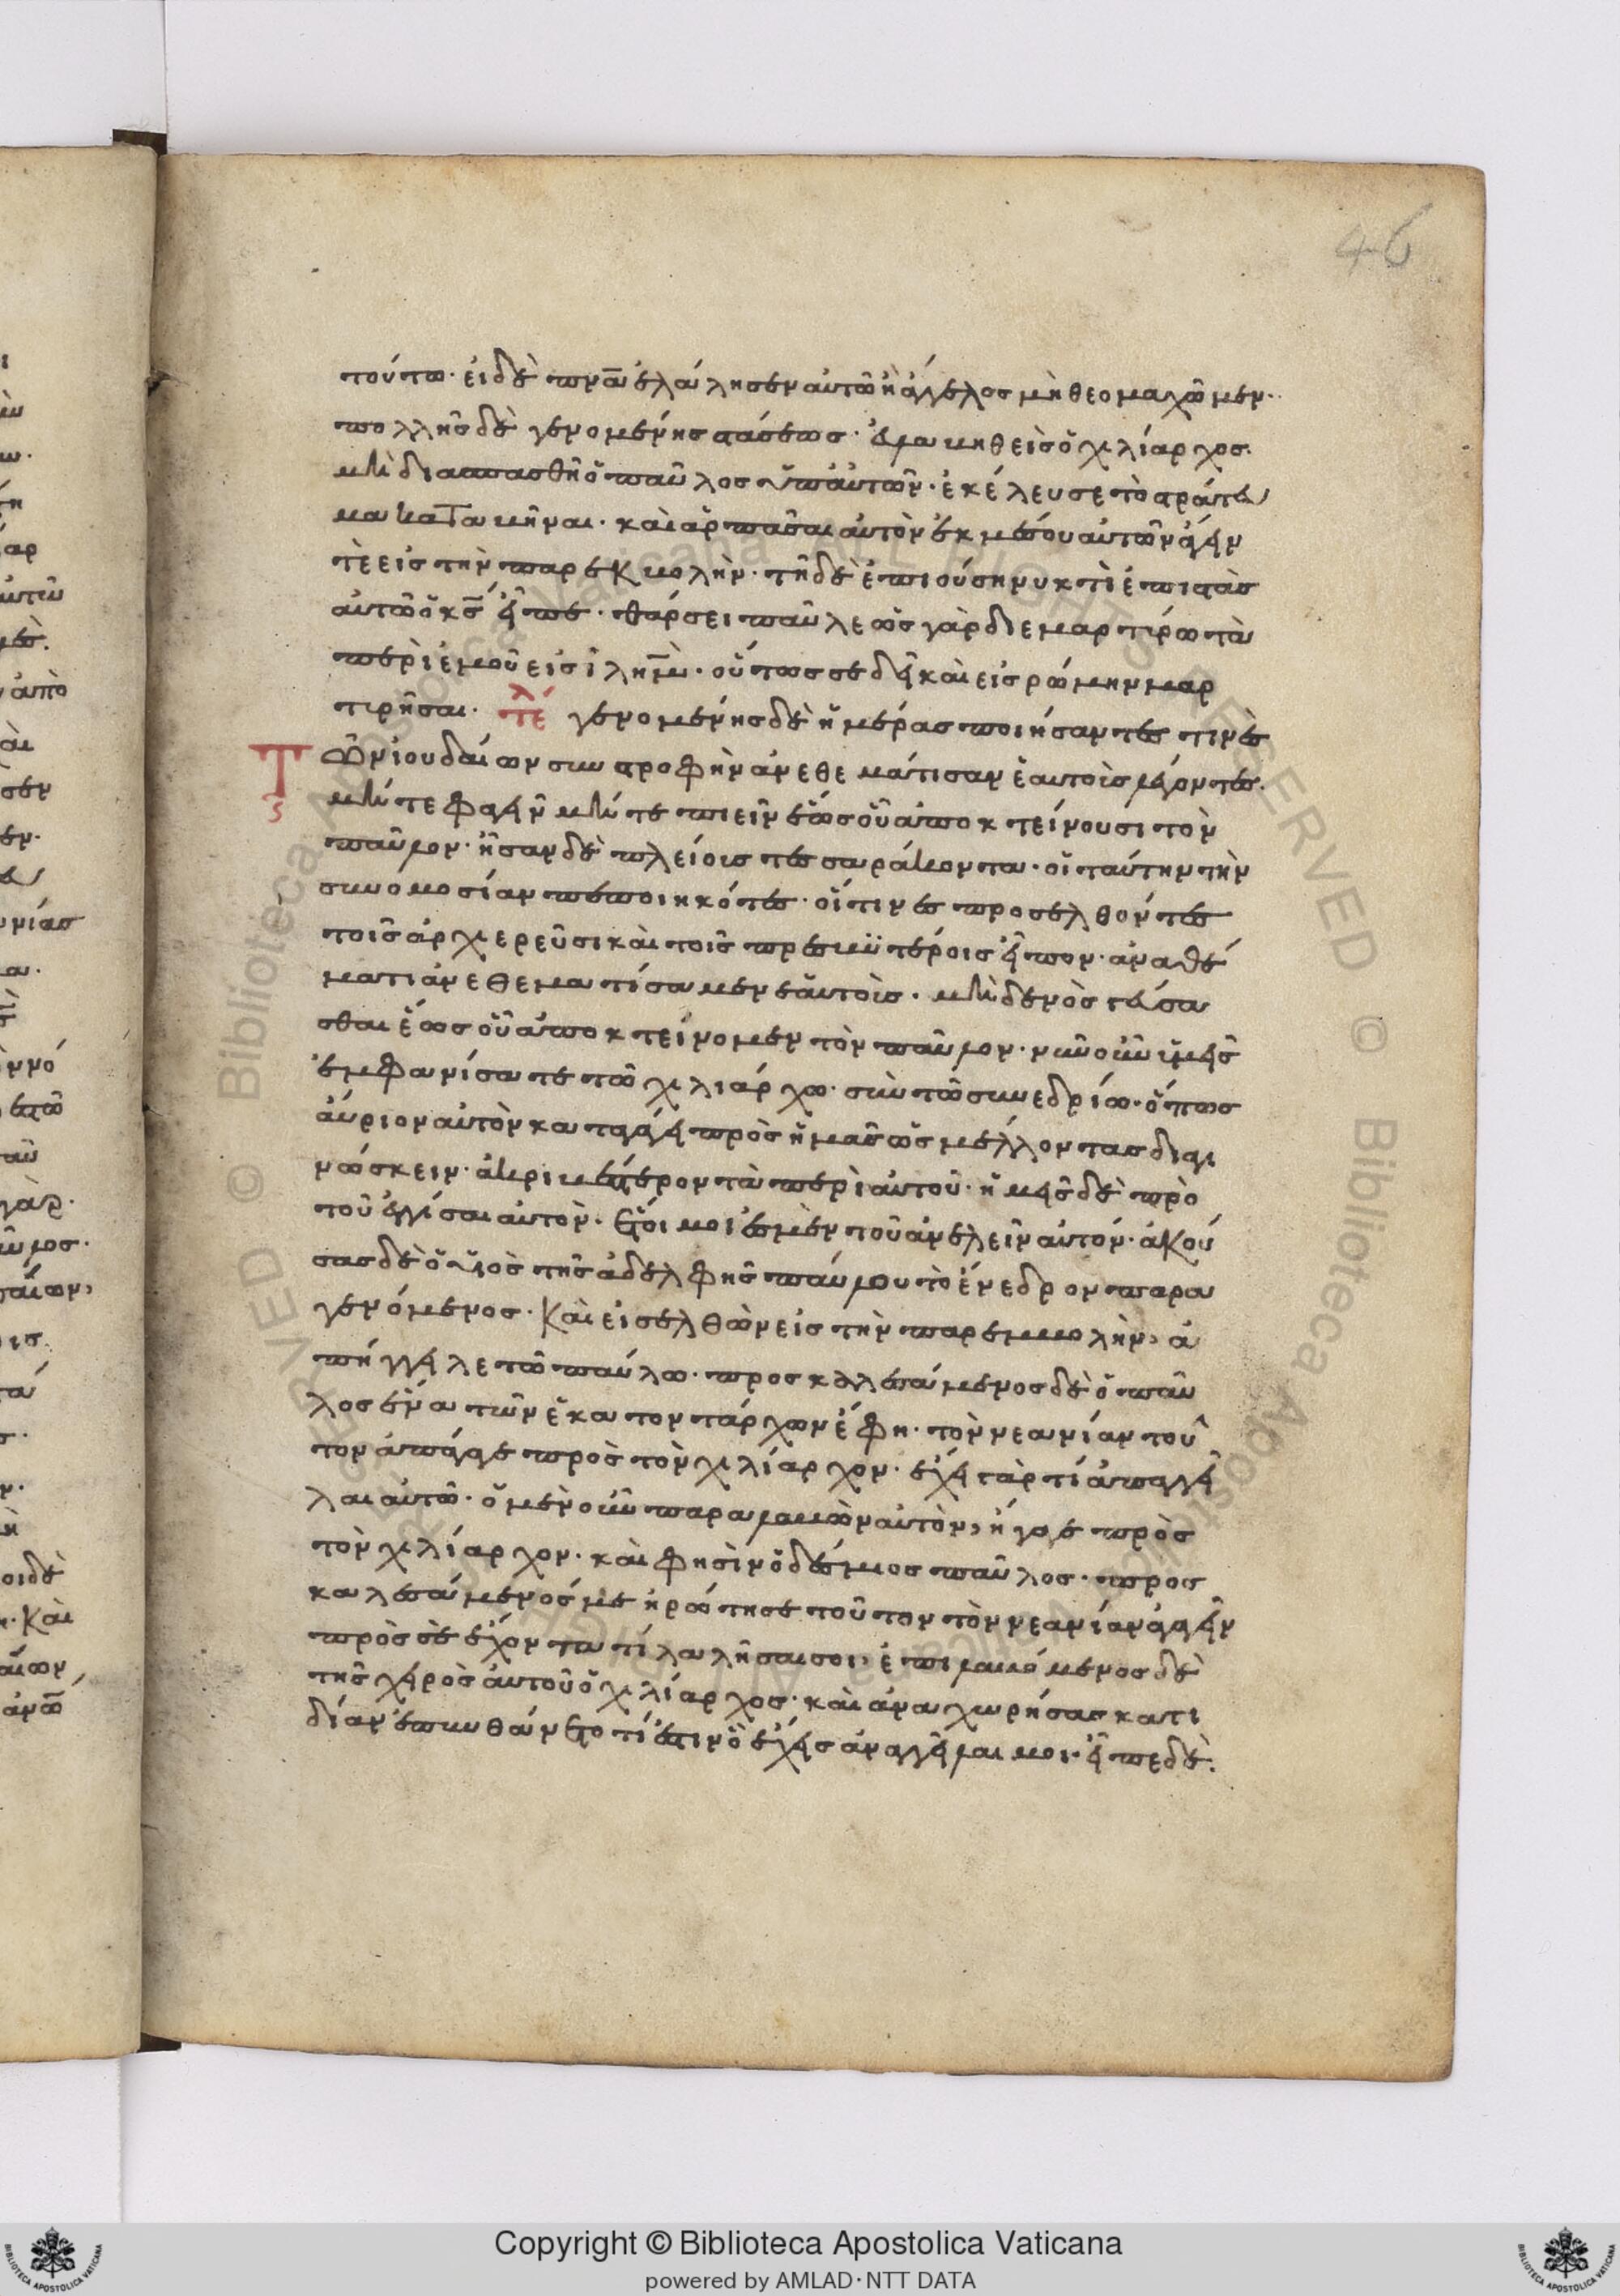 46
τούτω· εἰ δὲ πνᾶ ἐλάλησεν αὐτῶ ἢ ἄγγελος μὴ θεομαχῶμεν·
πολλῆς δὲ γενομένης στάσεως· εὐλαβηθεὶς ὁ χιλίαρχος·
μὴ διασπασθῆ ὁ παῦλος ὑπ' αὐτῶν· ἐκέλευσε τὸ στράτευ
μα καταβῆναι· καὶ ἁρπᾶσαι αὐτὸν ἐκ μέσου αὐτῶν ἄγειν
τὲ εἰς τὴν παρεκβολήν· τῆ δὲ ἐπιούση νυκτὶ ἐπιστὰς
αὐτῶ ὁ κς̄ εἶπε· θάρσει παῦλε ὡς γὰρ διεμαρτύρω τὰ
περὶ ἐμοῦ εἰς ἰλῆμ· οὕτως σε δεῖ καὶ εἰς ῥώμην μαρ
τυρῆσαι· τέλ γενομένης δὲ ἡμέρας ποιήσαντες τινὲς
Τῶν ἰουδαίων συστροφὴν ἀνεθεμάτισαν ἑαυτοὺς λέγοντες·
μήτε φαγεῖν μήτε πιεῖν ἕως οὗ ἀποκτείνουσι τὸν
παῦλον· ἦσαν δὲ πλείους τεσσαράκοντα· οἱ ταύτην τὴν
συνομοσίαν πεποιηκότες· οἵτινες προσελθόντες
τοῖς ἀρχιερεῦσι καὶ τοῖς πρεσβυτέροις εἶπον· ἀναθέ
ματι ἀνεθεματίσαμεν ἑαυτοὺς· μηδενὸς γεύσα
σθαι ἕως οὗ ἀποκτείνομεν τὸν παῦλον· νῦν οὖν ὑμεῖς
ἐμφανίσατε τῶ χιλιάρχω· σὺν τῶ συνεδρίω· ὅπως
αὔριον αὐτὸν καταγάγει πρὸς ἡμᾶς ὡς μέλλοντας διαγι
νώσκειν· ἀκριβέστερον τὰ περὶ αὐτοῦ· ἡμεῖς δὲ πρὸ
τοῦ ἐγγίσαι αὐτὸν· ἕτοιμοι ἐσμὲν τοῦ ἀνελεῖν αὐτόν· ἀκού
σας δὲ ὁ υἱὸς τῆς ἀδελφῆς παύλου τὸ ἔνεδρον παρα
γενόμενος· καὶ εἰσελθὼν εἰς τὴν παρεμβολὴν, ἀ
πήγγειλε τῶ παύλω· προσκαλεσάμενος δὲ ὁ παῦ
λος ἕνα τῶν ἑκατοντάρχων ἔφη· τὸν νεανίαν τοῦ
τον ἀπάγαγε πρὸς τὸν χιλίαρχον· ἔχει γάρ τί ἀπαγγεῖ
λαι αὐτῶ· ὁ μὲν οὖν παραλαβὼν αὐτὸν, ἤγαγε πρὸς
τὸν χιλίαρχον· καὶ φησὶν ὁ δέσμιος παῦλος· προσ
καλεσάμενός με ἠρώτησε τοῦτον τὸν νεανίαν ἀγαγεῖν
πρὸς σὲ ἔχοντα τί λαλῆσαι σοι, ἐπιλαβόμενος δὲ
τῆς χειρὸς αὐτοῦ ὁ χιλίαρχος· καὶ ἀναχωρήσας κατι
δίαν ἐπυνθάνετο τί ἐστιν ὃ ἔχεις ἀναγγεῖλαι μοι· εἶπε δὲ·
Copyright © Biblioteca Apostolica Vaticana
powered by AMLAD·NTT DATA